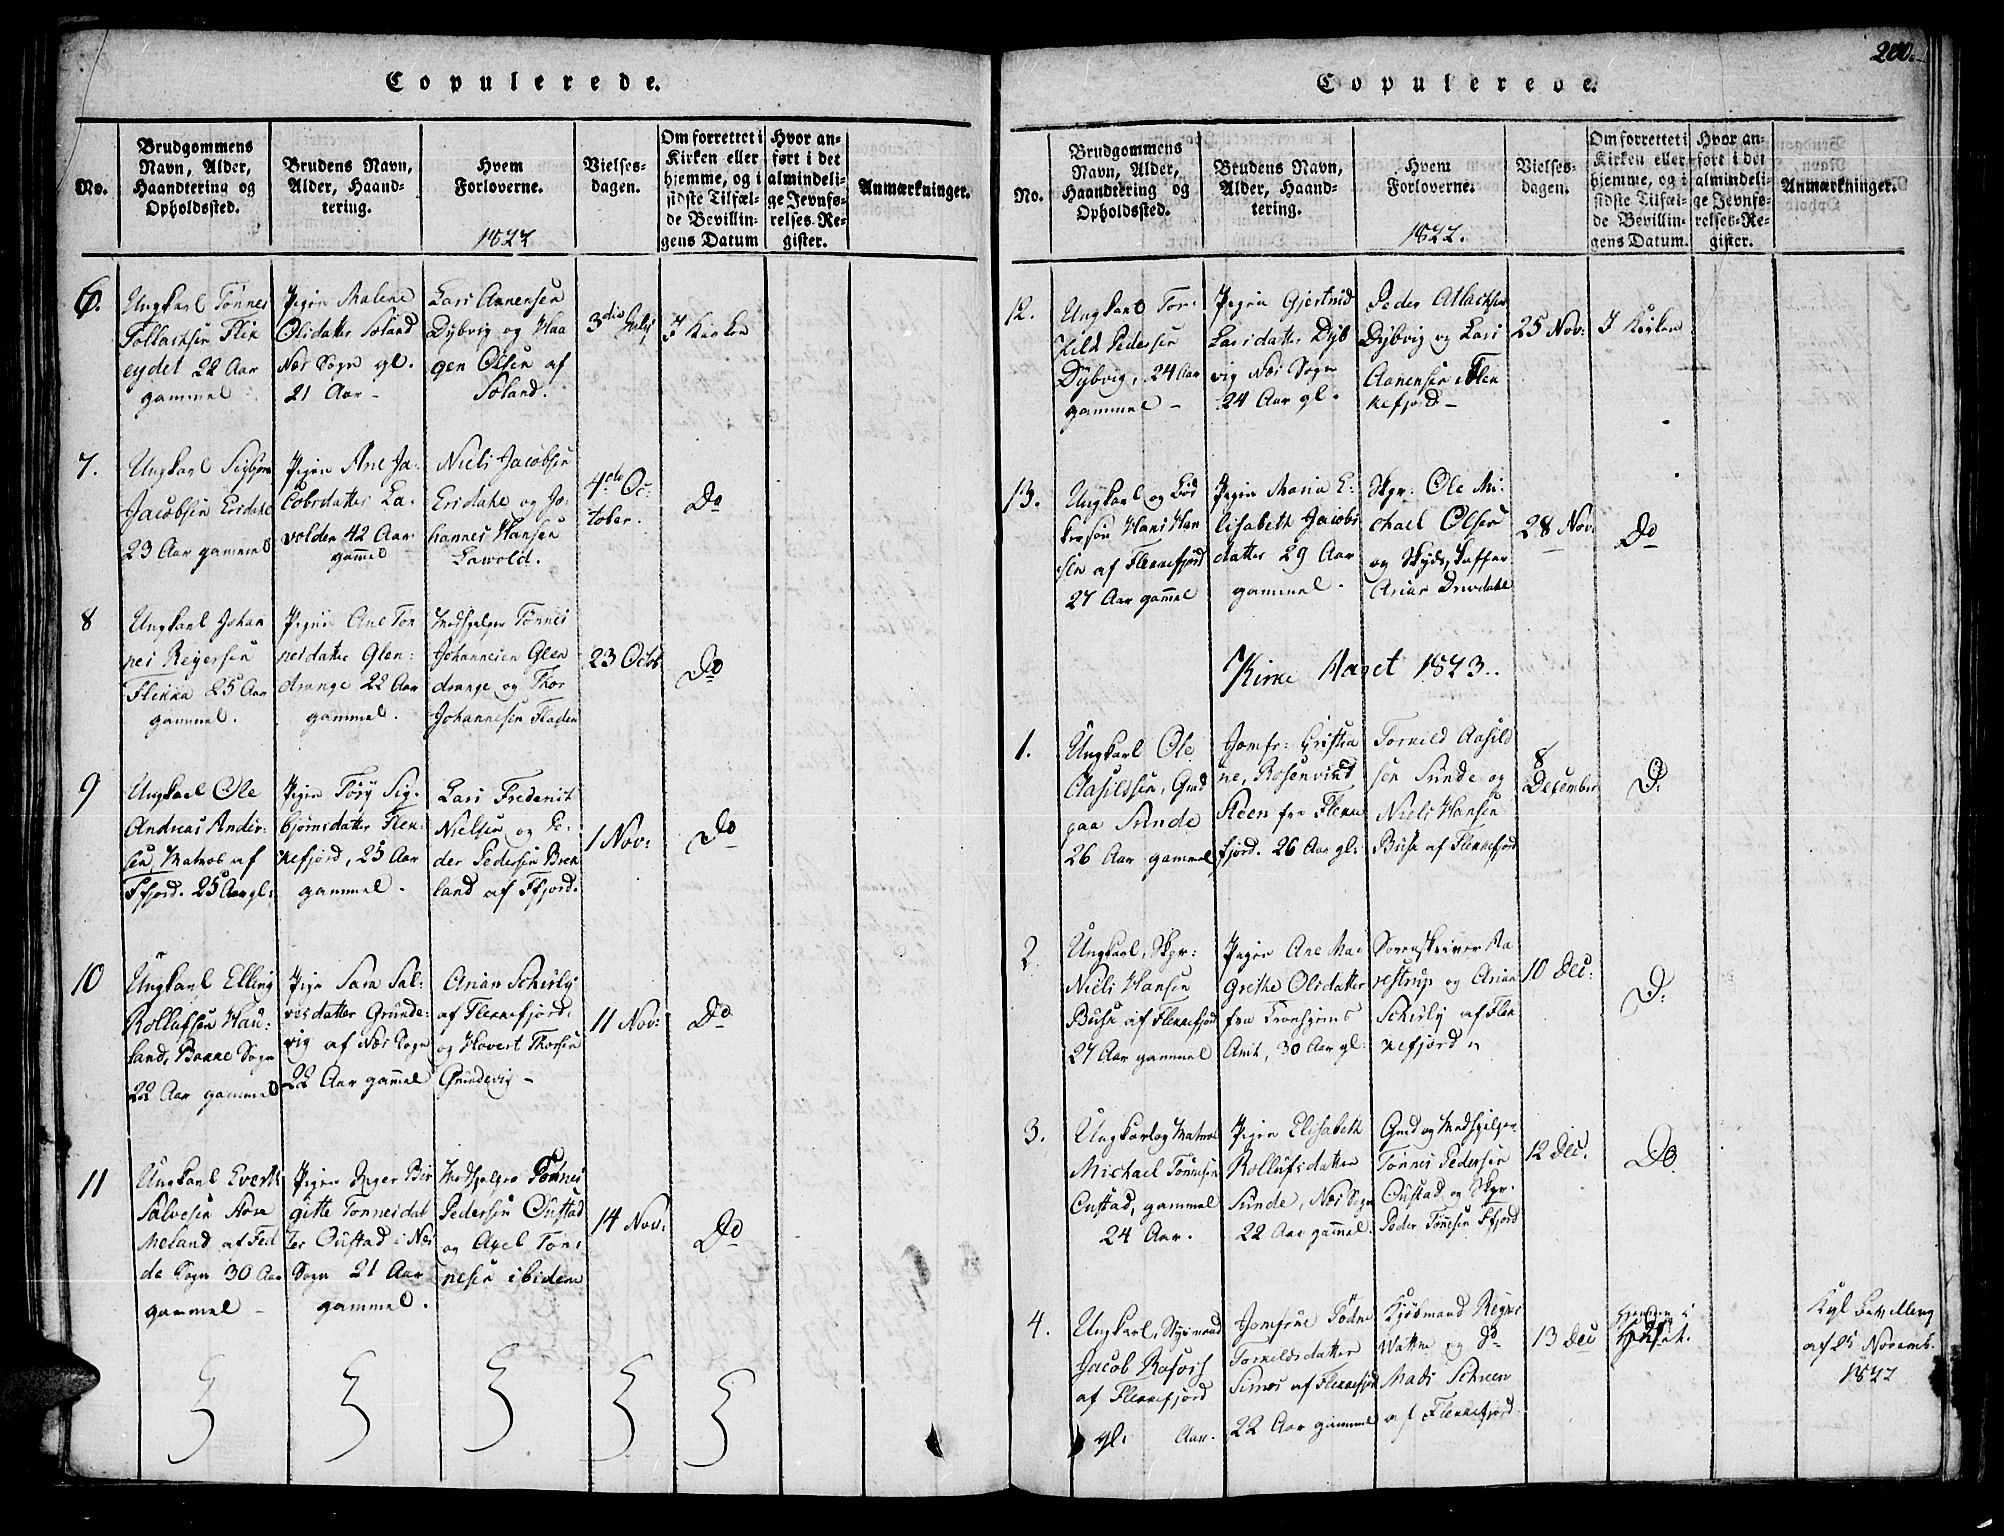 Copulerede.
No.
Brudgommens
Navn, Alder,
Haandtering og
Opholdssted.
Brudens Navn,
Alder, Haand-
tering.
Hvem
Forloverne.
1822
Vielses-
dagen.
Om forrettet i
Kirken eller
hjemme, og i
sidste Tilfæl-
de Bevillin-
gens Datum
Hvor an-
ført i det
almindeli-
ge Jevnfø-
relses-Re-
gister.
Anmærkninger.
6.
Ungkarl Tønnes
Tollachsen Flik
eydet 22 Aar
gammel
Pigen Malene
Olsdatter Soland
Næs Sogn gl.
21 Aar -
Lars Aanensen
Dybvig og Haa
gen Olsen af
Soland.
3die July
I Kirken
7.
Ungkarl Sigbjørn
Jacobsen Eersdahl
23 Aar gammel
Pigen Ane Ja-
cobsdatter La-
volden 42 Aar
gammel
Niels Jacobsen
Ersdahl og Jo-
hannes Hansen
Lawold.
4de Oc-
tober.
Do
8
Ungkarl Johan
nes Reyersen
Flikka 25 Aar
gammel.
Pigen Ane Tøn
nesdatter Glen-
drange 22 Aar
gammel.
Medhjelper Tønnes
Johannesen Glen
drange og Thor
Johannesen Fladen
23 Octb
Do
9
Ungkarl Ole
Andreas Ander-
sen, Matros af
Ffjord. 25 Aar gl:
Pigen Tory Sig-
bjørnsdatter Flek-
kefjord, 25 Aar
gammel.
Lars Frederik
Nielsen og Pe-
der Pedersen Brek
land af Ffjord.
1 Nov:
Do
10
Ungkarl Elling
Rollufsen Hau-
land, Bakke Sogn
22 Aar gammel
Pige Sara Sal-
vesdatter Grunde-
vig af Næs Sogn
22 Aar gammel
Arian Schirly
af Flekkefjord,
og Hovert Thorsen
Grundevig -
11 Nov:
Do
11
Ungkarl Evert
Salvesen Store
Meland af Fed
de Sogn 30 Aar
gammel -
Pigen Inger Bir
gitte Tønnesdat
ter Oustad i Næs
Sogn 21 Aar
gammel.
Medhjelper Tønnes
Pedersen Oustad
og Axel Tøn-
nesen ibidem
14 Nov:
Do
200.
Copulerede.
No.
Brudgommens
Navn, Alder,
Haandtering og
Opholdssted.
Brudens Navn,
Alder, Haand-
tering.
Hvem
Forloverne.
1822.
Vielses-
dagen.
Om forrettet i
Kirken eller
hjemme, og i
sidste Tilfæl-
de Bevillin-
gens Datum.
Hvor an-
ført i det
almindeli-
ge Jevnfø-
relses-Re-
gister.
Anmærkninger.
12.
Ungkarl Tor-
kild Pedersen
Dybvig, 24 Aar
gammel -
Pigen Gjertrud
Larsdatter Dyb
vig Næs Sogn
24 Aar gl.
Peder Atlachsen
Dybvig og Lars
Aanensen i Flek
kefjord -
25 Nov:
I Kirken
13.
Ungkarl og Bød
kersøn Hans Han
sen af Flekkefjord
27 Aar gammel
Pigen Maria E-
lisabeth Jacobs
datter 29 Aar
gammel.
Skpr: Ole Mi-
chael Olsen
og Skydsskaffer
Arian Drivdahl
28 Nov
Do
Kirke Aaret 1823..
1.
Ungkarl Ole
Aasildsen, Gmd
paa Sunde
26 Aar gammel
Jomfr: Cristia
ne, Rosenvind
Steen fra Flekke
fjord. 26 Aar gl:
Torkild Aasild
sen Sunde og
Niels Hansen
Busk af Flekkefjord
8
December
D:
2
Ungkarl, Skpr:
Niels Hansen
Busk af Flekkefjord
27 Aar gammel
Pigen Ane Mar
grethe Olsdatter
fra Tronhjems
Amt, 30 Aar gl:
Sorenskriver Aa
restrup og Arian
Schirly af Flek
kefjord
10 Dec:
D:
3.
Ungkarl og Matros
Michael Tønnesen
Oustad, gammel
24 Aar.
Pigen Elisabeth
Rollufsdatter
Sunde, Næs Sogn
22 Aar gammel.
Gmd og Medhjelper
Tønnes Pedersen
Oustad og Skpr.
Peder Tønnesen Ffjord
12 Dec.
Do
4.
Ungkarl, Styrmand
Jacob Rasvog
af Flekkefjord
gl. Aar.
Jomfrue
Torkildsdatter
af Flekkefjord
22 Aar gammel
Kjøbmand Regner
Wattne og Do
Mads Scheen
af Flekkefjord
13 Dec
Hjemme i
Huset.
Kgl bevilling
af 25 Novemb.
1822